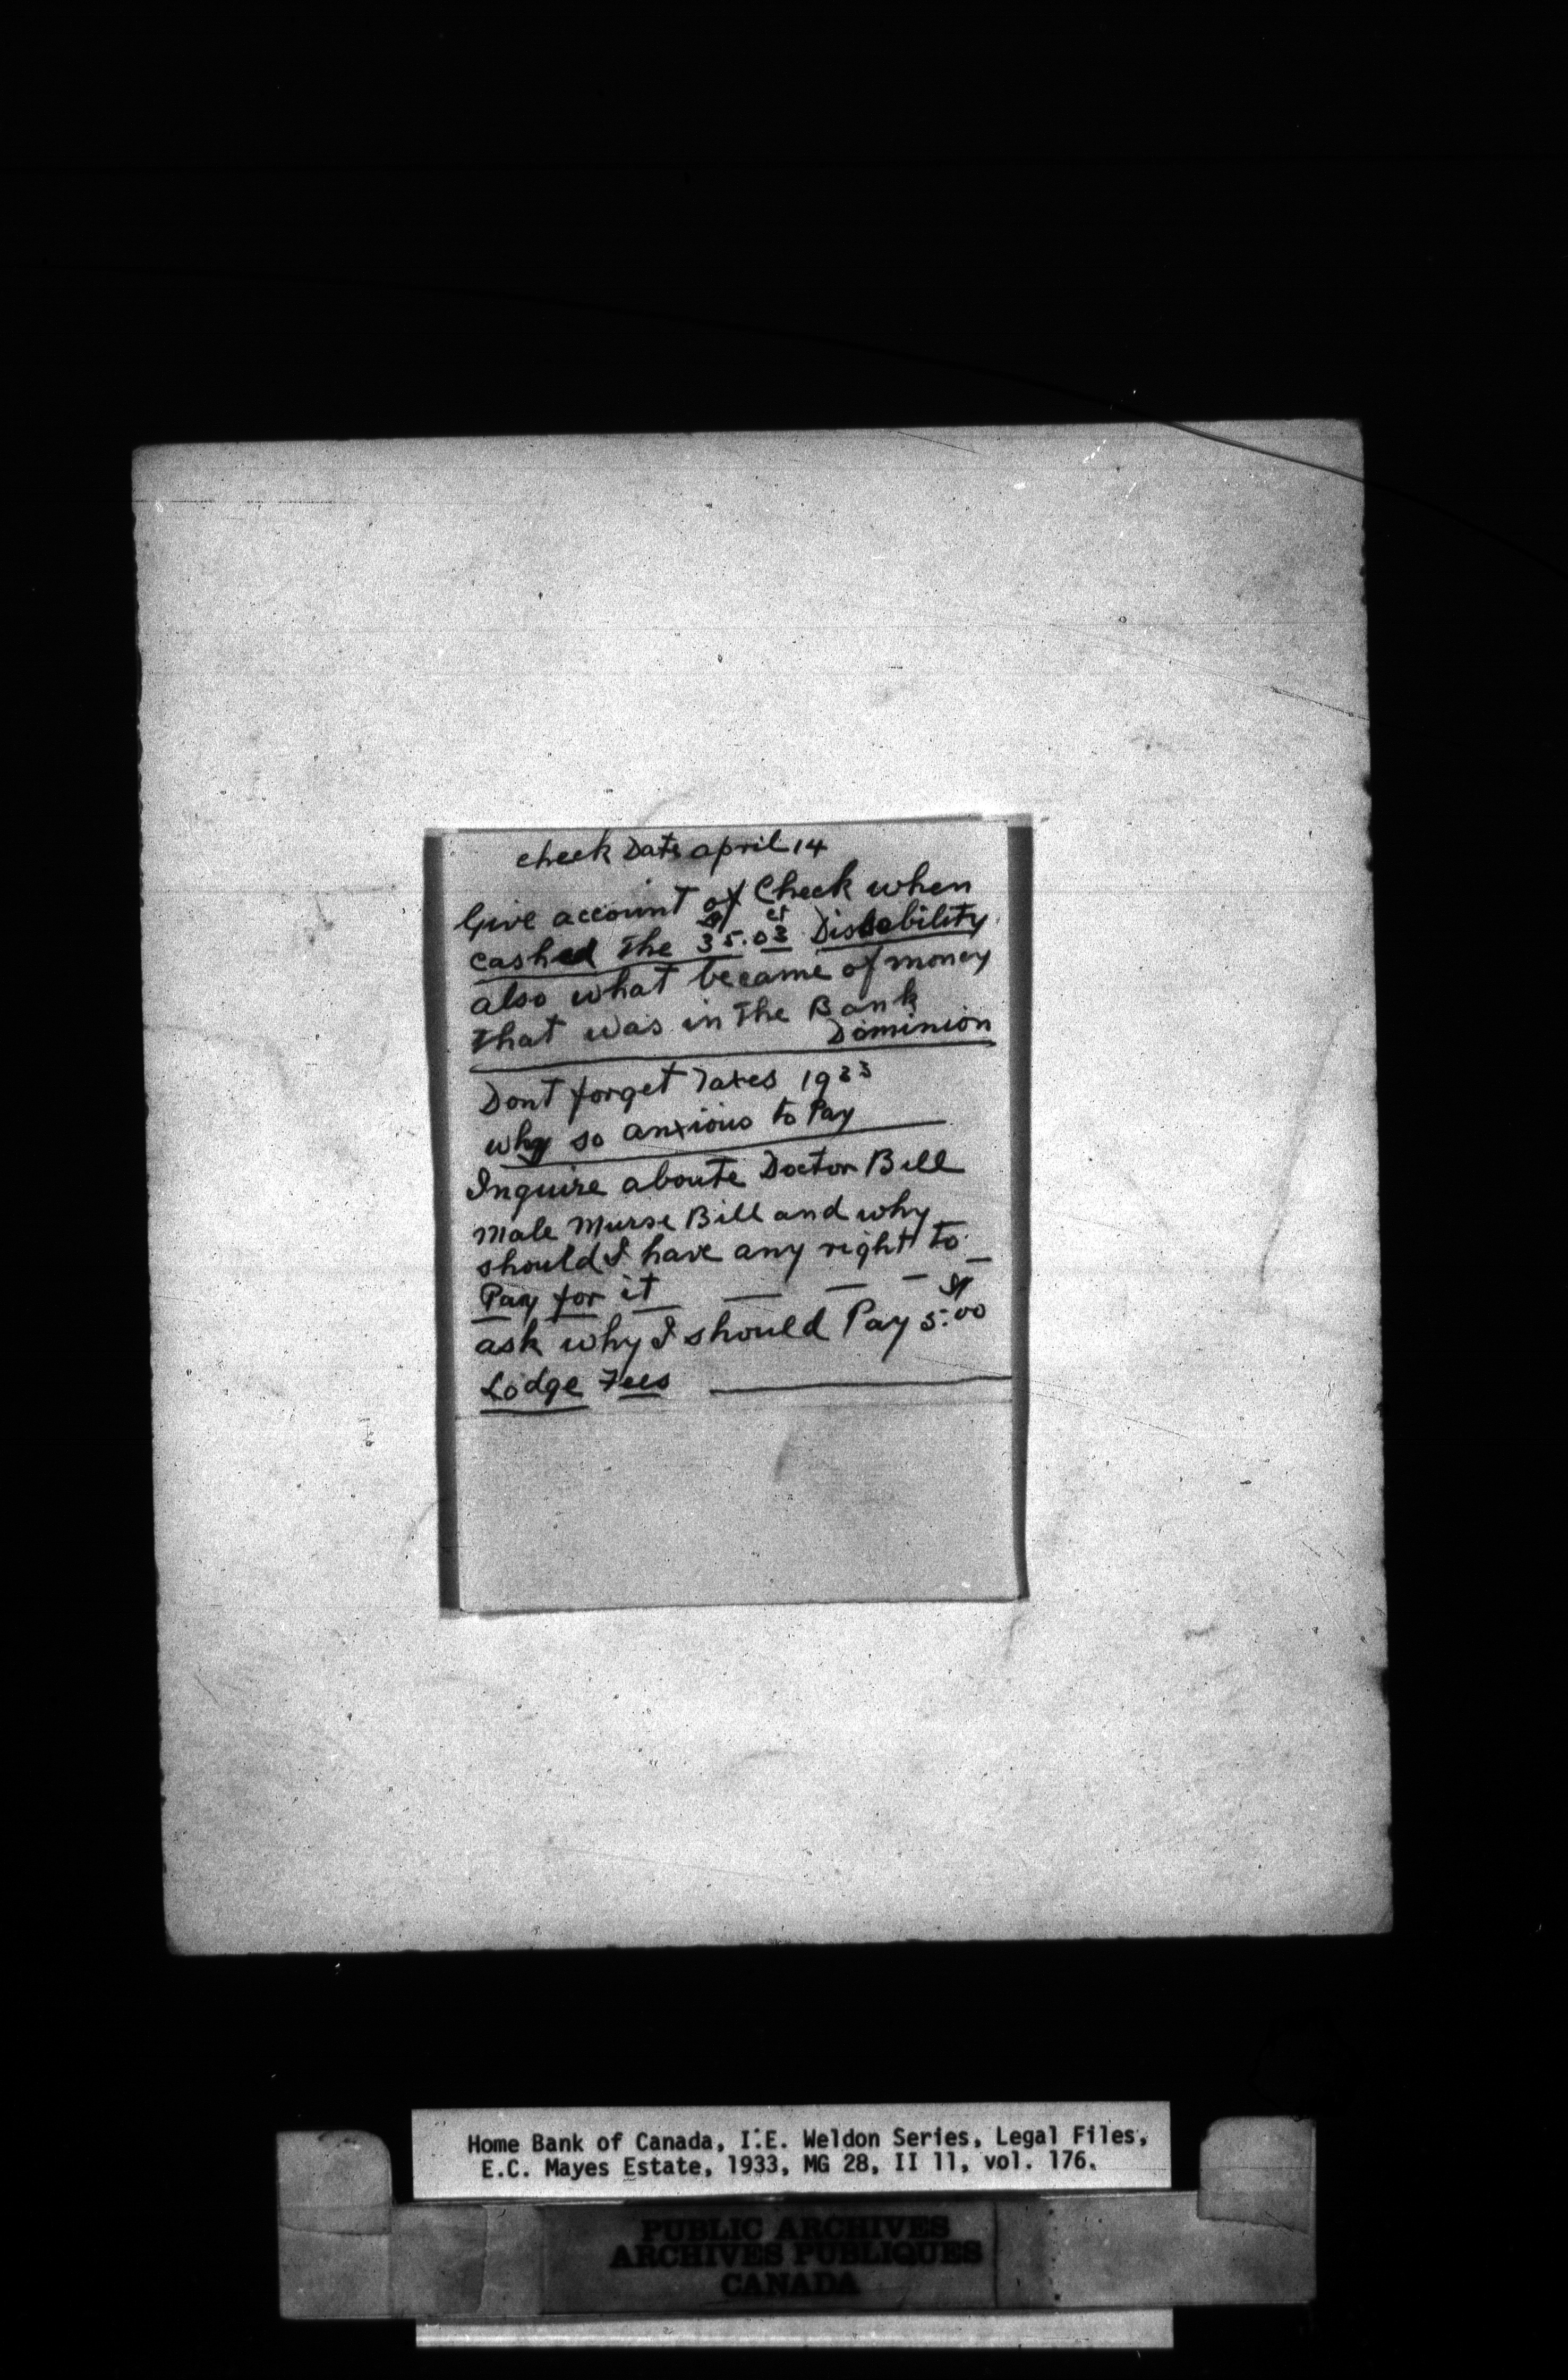 check Date april 14
Give account of Check when
$ ct
cashed the 35.03 Disability
also what became of money
that was in the Bank
Dominion
Dont forget Taxes 1933
why so anxious to Pay
Inquire aboute Doctor Bill
male Murse Bill and why
should I have any right to
Pay for it
$
ask why I should Pay 5.00
Lodge Fees
Home Bank of Canada, I.E. Weldon Series, Legal Files,
E.C. Mayes Estate, 1933, MG 28, II 11, vol. 176.
PUBLIC ARCHIVES
ARCHIVES PUBLIQUES
CANADA